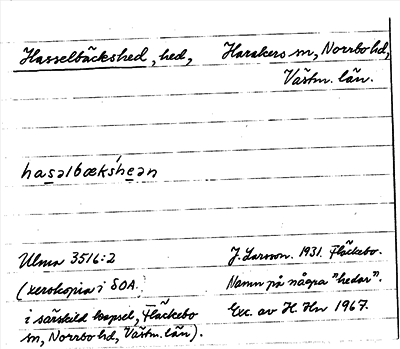 Hasselbäckshed, hed, Harakers sn, Norrbo hd,
Västm. län.
hasəlbækshe̱ən
Ulma 3516:2 J. Larsson. 1931. Fläckebo.
(xerokopia i SOA. Namn på några "hedar".
i särskild kapsel, Fläckebo Exc. av H Hn 1967.
sn, Norrbo hd, Västm. län).